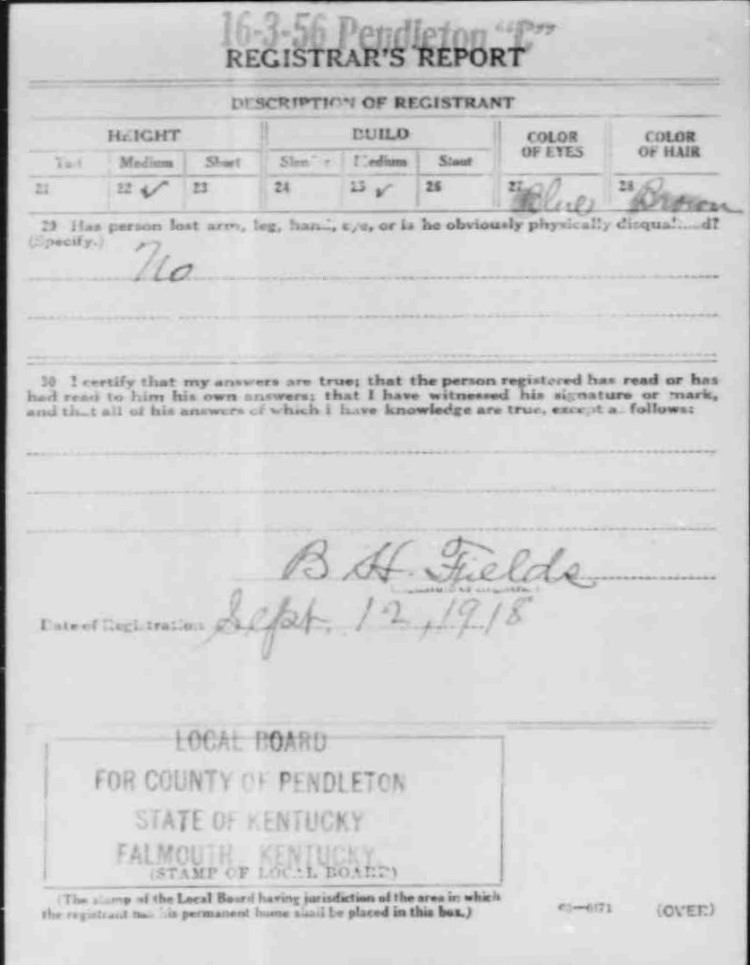 16-3-56 Pendleton "C"
REGISTRAR'S REPORT
DESCRIPTION OF REGISTRANT
HEIGHT BUILD COLOR OF EYES COLOR OF HAIR
Tall Medium Short Slender Medium Stout
21 22 ✓ 23 24 25 ✓ 26 27 Blue 28 Brown
29 Has person lost arm, leg, hand, eye, or is he obviously physically disqualified?
(Specify.)
No
30 I certify that my answers are true; that the person registered has read or has
had read to him his own answers; that I have witnessed his signature or mark,
and that all of his answers of which I have knowledge are true, except as follows:
B H. Fields
Date of Registration Sept. 12, 1918
LOCAL BOARD
FOR COUNTY OF PENDLETON
STATE OF KENTUCKY
FALMOUTH, KENTUCKY.
(STAMP OF LOCAL BOARD)
(The stamp of the Local Board having jurisdiction of the area in which
the registrant has his permanent home shall be placed in this box.)
(OVER)